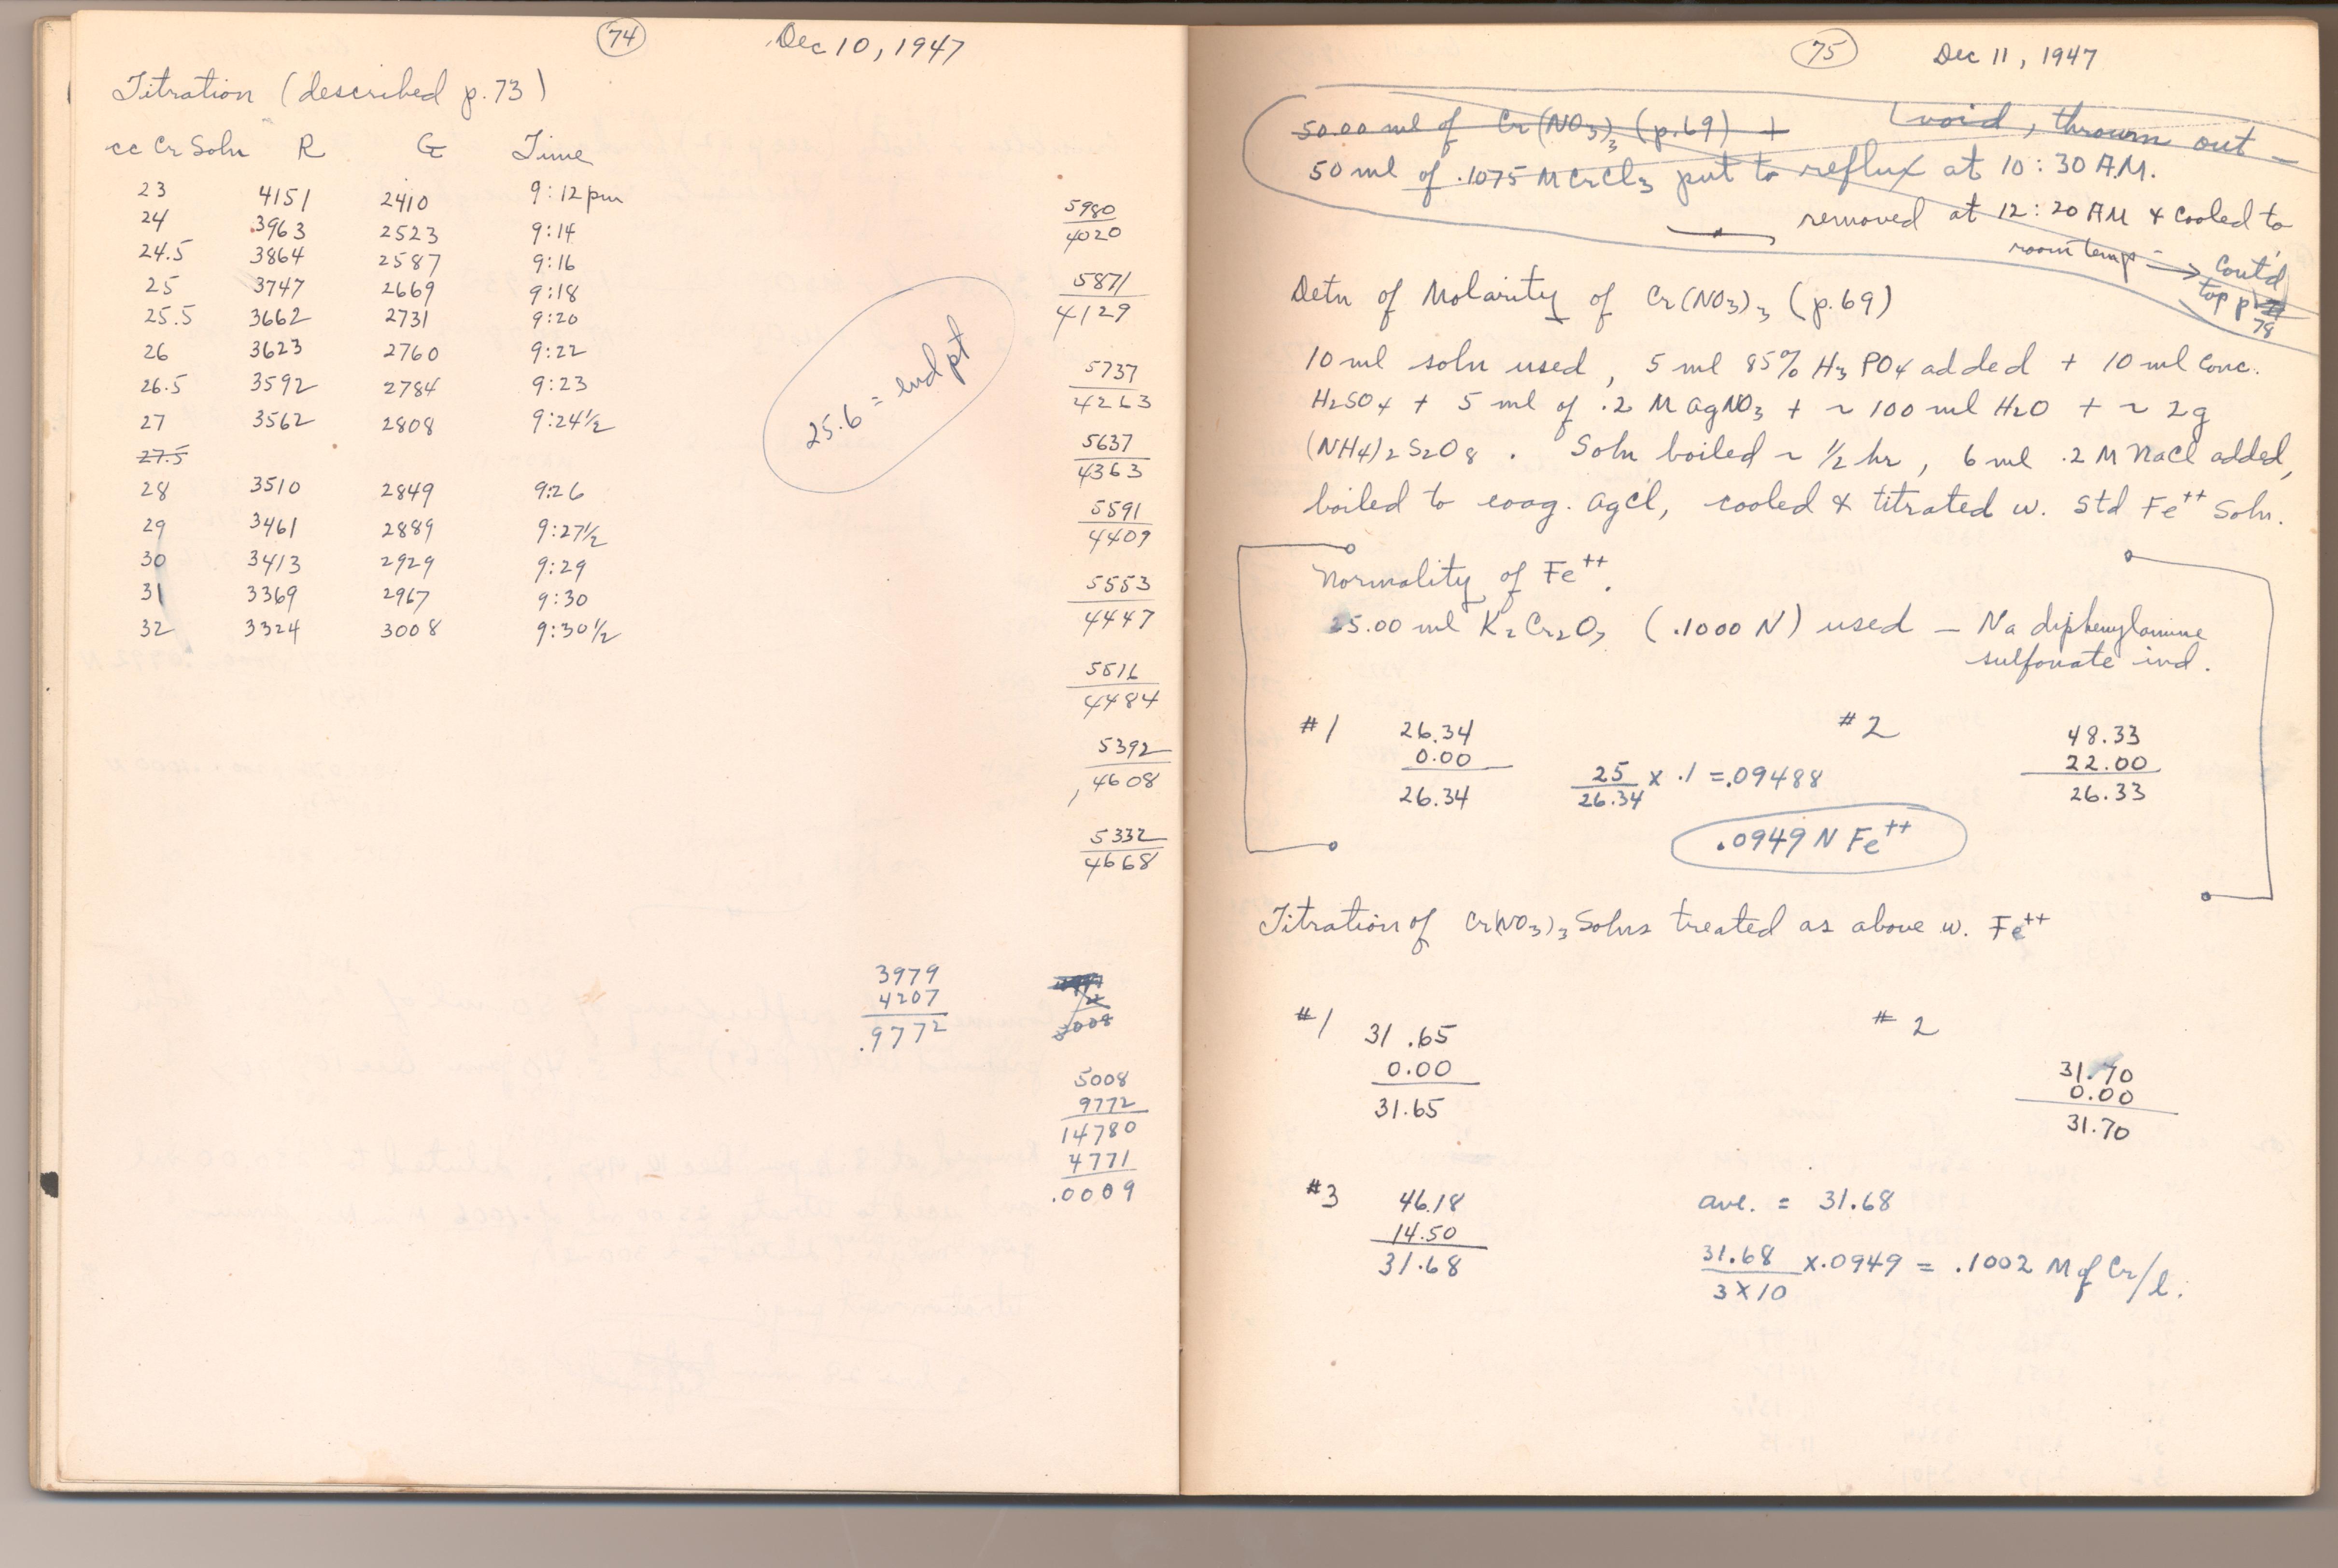 74
Dec 10, 1947
Titration (described p. 73)
cc Cr Soln R G Time
23 4151 2410 9:12 pm
24 3963 2523 9:14
24.5 3864 2587 9:16
25 3747 2669 9:18
25.5 3662 2731 9:20
26 3623 2760 9:22
26.5 3592 2784 9:23
27 3562 2808 9:24½
27.5
28 3510 2849 9:26
29 3461 2889 9:27½
30 3413 2929 9:29
31 3369 2967 9:30
32 3324 3008 9:30½
25.6 = end pt
5980
4020
5871
4129
5737
4263
5637
4363
5591
4409
5553
4447
5516
4484
5392
4608
5332
4668
3979
4207
.9772
3008
5008
9772
14780
4771
.0009
75
Dec 11, 1947
50.00 ml of Cr(NO3)3 (p.69) + (void, thrown out –
50 ml of .1075 M CrCl3 put to reflux at 10:30 A.M.
removed at 12:20 AM & cooled to
room temp → Cont'd
top p
78
Detn of Molarity of Cr(NO3)3 (p.69)
10 ml soln used, 5 ml 85% H3PO4 added + 10 ml conc.
H2SO4 + 5 ml of .2 M AgNO3 + ~ 100 ml H2O + ~ 2g
(NH4)2S2O8 . Soln boiled ~ ½ hr, 6 ml .2 M NaCl added,
boiled to coag. AgCl, cooled & titrated w. std Fe++ Soln.
Normality of Fe++.
25.00 ml K2Cr2O7 (.1000 N) used – Na diphenylamine
sulfonate ind.
#1 26.34
0.00
26.34
25/26.34 x .1 = .09488
#2 48.33
22.00
26.33
.0949 N Fe++
Titration of Cr(NO3)3 Solns treated as above w. Fe++
#1 31.65
0.00
31.65
#2
31.70
0.00
31.70
#3 46.18
14.50
31.68
ave. = 31.68
31.68/3 x 10 x .0949 = .1002 M of Cr/l.